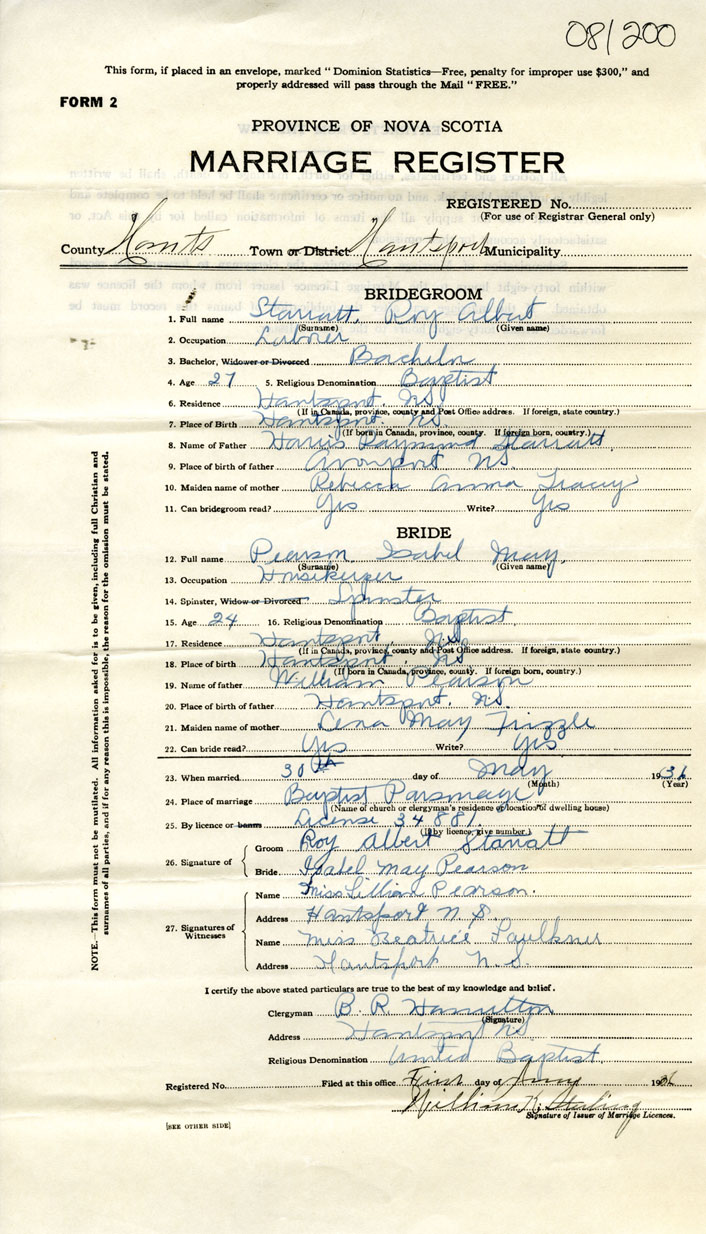 08/200
This form, if placed in an envelope, marked “Dominion Statistics—Free, penalty for improper use $300,” and
properly addressed will pass through the Mail “FREE.”
FORM 2
PROVINCE OF NOVA SCOTIA
MARRIAGE REGISTER
REGISTERED No.
(For use of Registrar General only)
County Hants Town or District Hantsport Municipality
BRIDEGROOM
1. Full name Starratt, Roy Albert
(Surname) (Given name)
2. Occupation Laborer
3. Bachelor, Widower or Divorced Bachelor
4. Age 27 5. Religious Denomination Baptist
6. Residence Hantsport, NS
(If in Canada, province, county and Post Office address. If foreign, state country.)
7. Place of Birth Hantsport, NS
(If born in Canada, province, county. If foreign born, country.)
8. Name of Father Harris Raymond Starratt
9. Place of birth of father Avonport NS
10. Maiden name of mother Rebecca Anna Tracey
11. Can bridegroom read? Yes Write? Yes
BRIDE
12. Full name Pearson, Isabel May
(Surname) (Given name)
13. Occupation Housekeeper
14. Spinster, Widow or Divorced Spinster
15. Age 24 16. Religious Denomination Baptist
17. Residence Hantsport, NS
(If in Canada, province, county and Post Office address. If foreign, state country.)
18. Place of birth Hantsport, NS
(If born in Canada, province, county. If foreign born, country.)
19. Name of father William Pearson
20. Place of birth of father Hantsport, NS
21. Maiden name of mother Lena May Frizzle
22. Can bride read? Yes Write? Yes
23. When married 30th day of May 1936
(Month) (Year)
24. Place of marriage Baptist Parsonage
(Name of church or clergyman's residence or location of dwelling house)
25. By licence or banns License 34881
(If by licence, give number)
26. Signature of
Groom Roy Albert Starratt
Bride Isabel May Pearson
27. Signatures of Witnesses
Name Miss Lillian Pearson.
Address Hantsport N.S.
Name Miss Beatrice Faulkner
Address Hantsport N.S.
I certify the above stated particulars are true to the best of my knowledge and belief.
Clergyman B. R. Hamilton
(Signature)
Address Hantsport NS
Religious Denomination United Baptist
Registered No. Filed at this office First day of June 1936
William K. Sterling
Signature of Issuer of Marriage Licences.
[SEE OTHER SIDE]
NOTE.—This form must not be mutilated. All information asked for is to be given, including full Christian and
surnames of all parties, and if for any reason this is impossible, the reason for the omission must be stated.